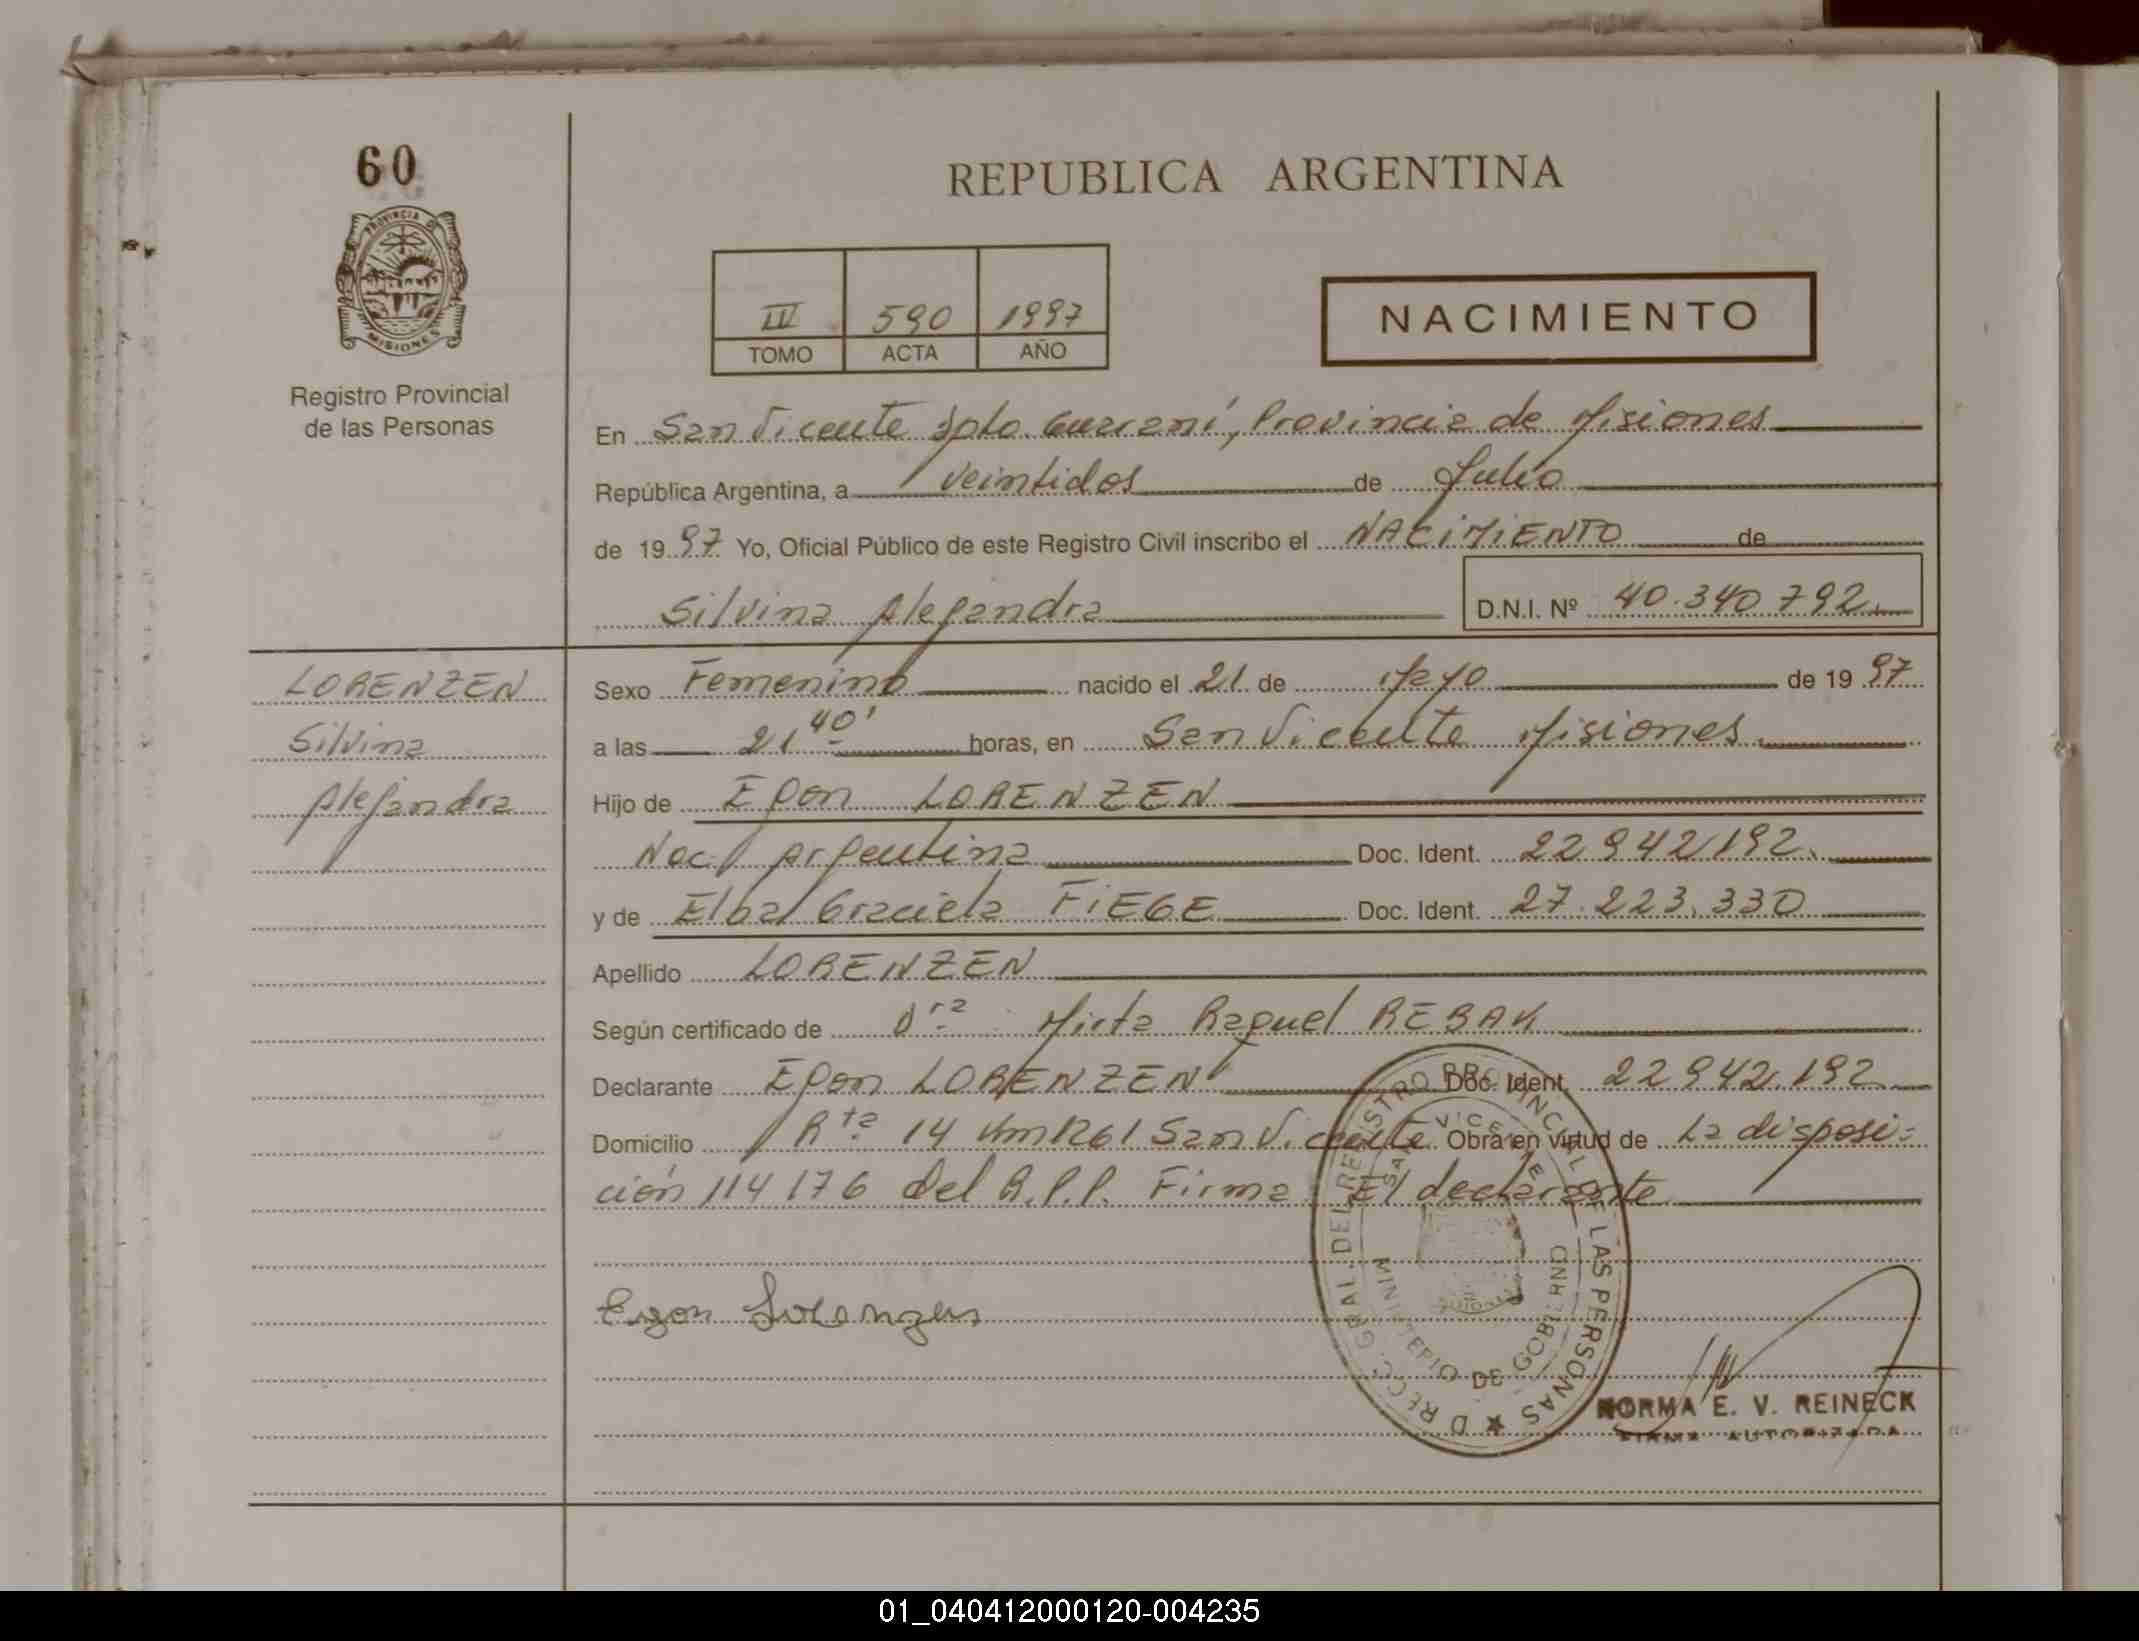 60
REPUBLICA ARGENTINA
PROVINCIA DE MISIONES
Registro Provincial
de las Personas
III 590 1997
TOMO ACTA AÑO
NACIMIENTO
En San Vicente Dpto. Guaraní, Provincia de Misiones
República Argentina, a veintidos de Julio
de 1997 Yo, Oficial Público de este Registro Civil inscribo el NACIMIENTO de
Silvina Alejandra D.N.I. Nº 40.340.792
LORENZEN
Silvina
Alejandra
Sexo Femenino nacido el 21 de Mayo de 1997
a las 21 40' horas, en San Vicente Misiones
Hijo de Egon LORENZEN
Nac. Argentina Doc. Ident. 22.942.192
y de Elba Graciela FIEGE Doc. Ident. 27.223.330
Apellido LORENZEN
Según certificado de Dra. Mirta Raquel REBAK
Declarante Egon LORENZEN Doc. Ident. 22.942.192
Domicilio Rta 14 Km 1261 San Vicente Obra en virtud de La disposi-
ción 114/76 del R.P.P. Firma El declarante
Egon Lorenzen
DIRECC. GRAL. DEL REGISTRO PROVINCIAL DE LAS PERSONAS
SAN VICENTE
MINISTERIO DE GOBIERNO
NORMA E. V. REINECK
FIRMA AUTORIZADA
01_040412000120-004235